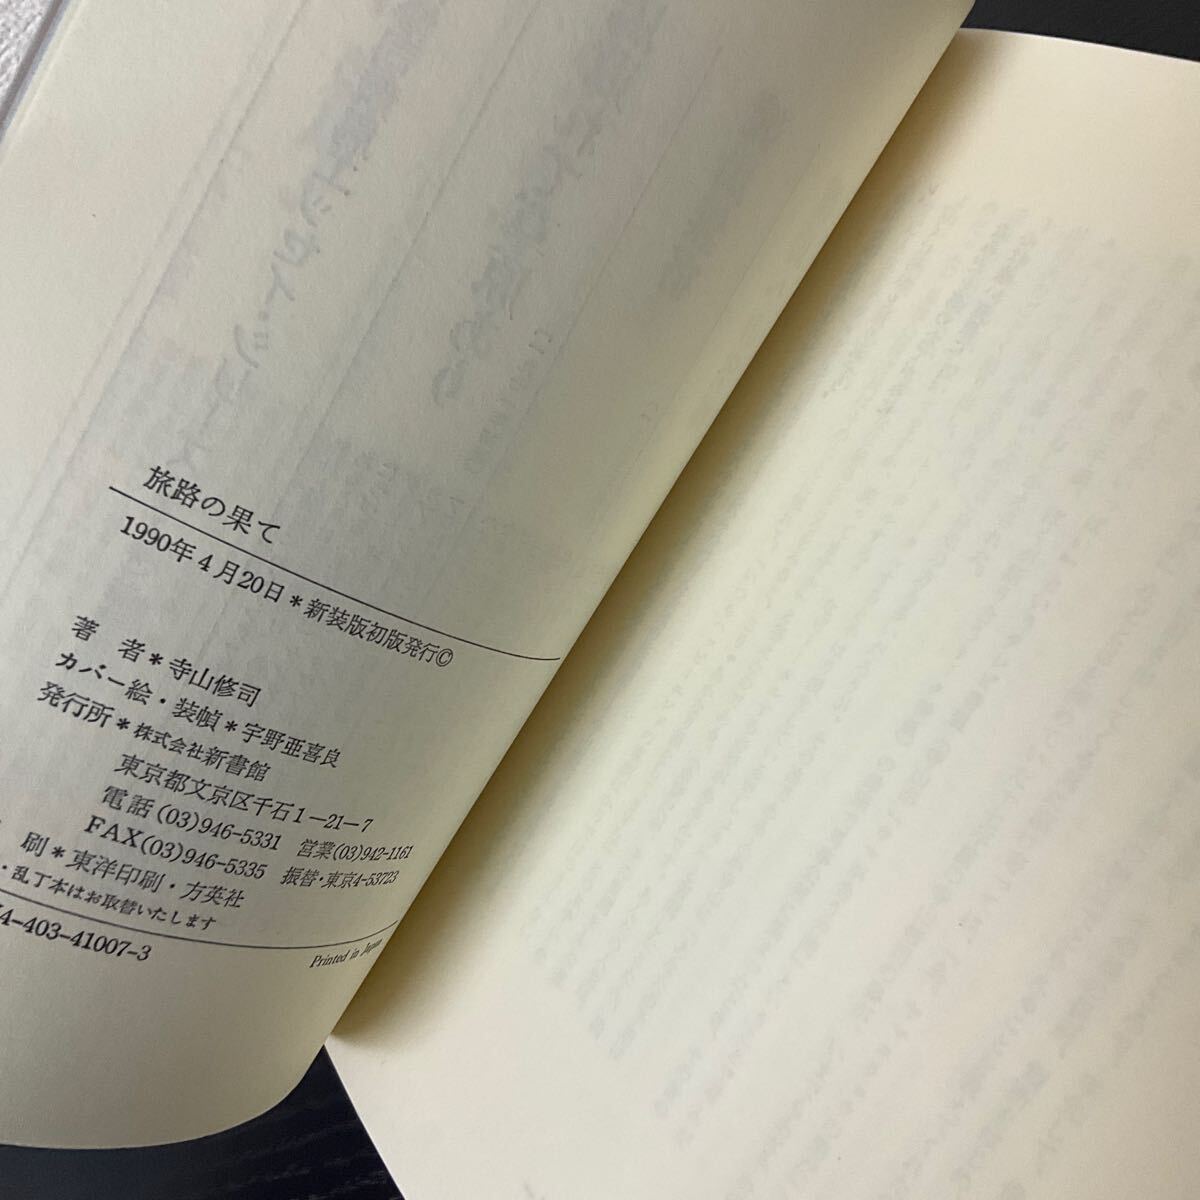 旅路の果て
1990年4月20日＊新装版初版発行©
著　者＊寺山修司
カバー絵・装幀＊宇野亜喜良
発行所＊株式会社新書館
東京都文京区千石1—21—7
電話(03)946-5331　営業(03)942-1161
FAX(03)946-5335　振替・東京4-53723
刷＊東洋印刷・方英社
・乱丁本はお取替いたします
4-403-41007-3
Printed in Japan